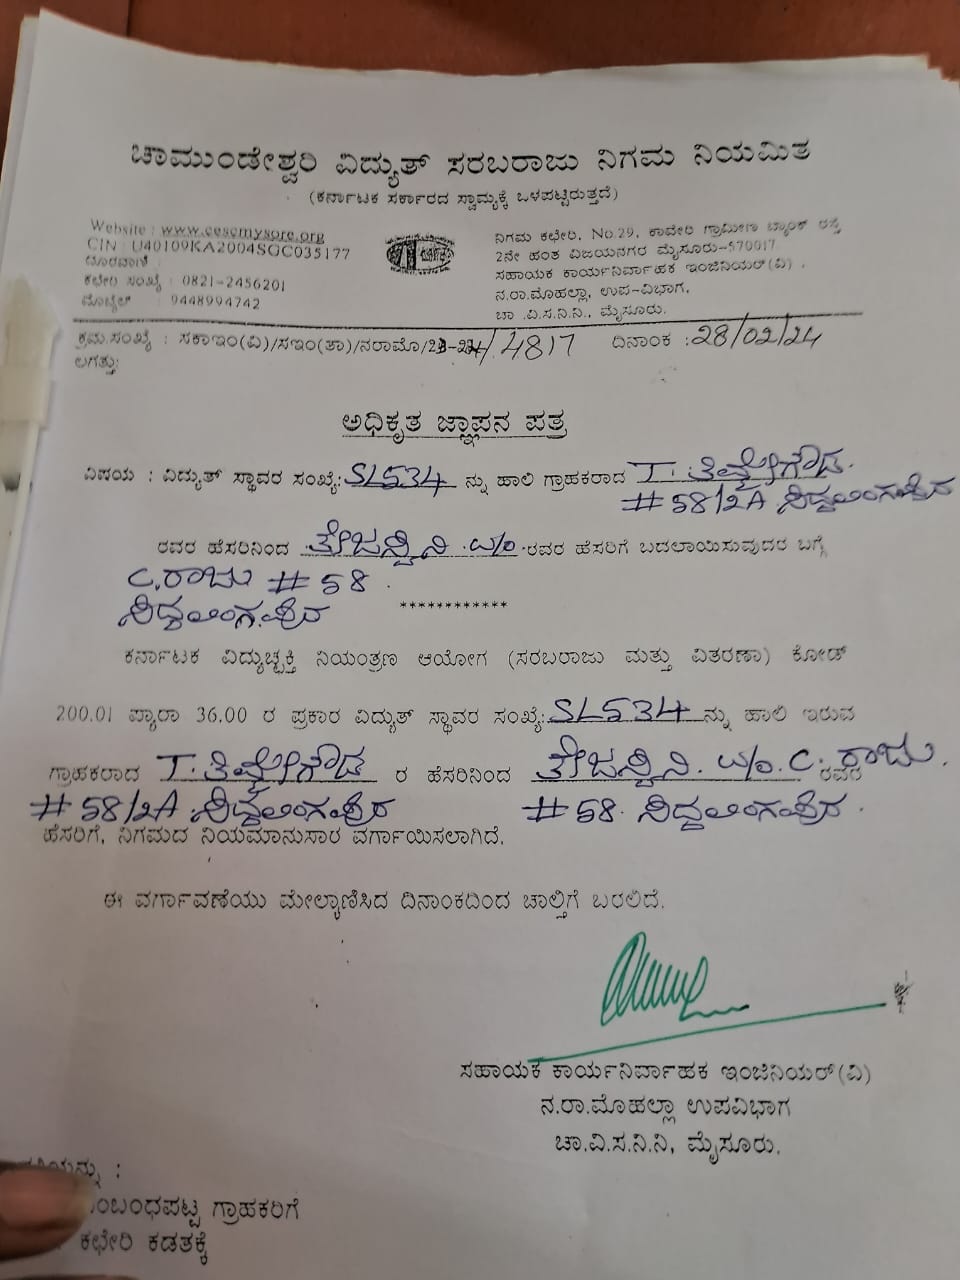 ಚಾಮುಂಡೇಶ್ವರಿ ವಿದ್ಯುತ್ ಸರಬರಾಜು ನಿಗಮ ನಿಯಮಿತ
(ಕರ್ನಾಟಕ ಸರ್ಕಾರದ ಸ್ವಾಮ್ಯಕ್ಕೆ ಒಳಪಟ್ಟಿರುತ್ತದೆ)
Website : www.cescmysore.org
CIN : U40109KA2004SGC035177
ದೂರವಾಣಿ :
ಕಛೇರಿ ಸಂಖ್ಯೆ : 0821-2456201
ಮೊಬೈಲ್ : 9448994742
ನಿಗಮ ಕಛೇರಿ, No.29, ಕಾವೇರಿ ಗ್ರಾಮೀಣ ಬ್ಯಾಂಕ್ ರಸ್ತೆ
2ನೇ ಹಂತ ವಿಜಯನಗರ ಮೈಸೂರು-570017
ಸಹಾಯಕ ಕಾರ್ಯನಿರ್ವಾಹಕ ಇಂಜಿನಿಯರ್(ವಿ) .
ನ.ರಾ.ಮೊಹಲ್ಲಾ, ಉಪ-ವಿಭಾಗ,
ಚಾ .ವಿ.ಸ.ನಿ.ನಿ., ಮೈಸೂರು.
ಕ್ರಮ.ಸಂಖ್ಯೆ : ಸಕಾಇಂ(ವಿ)/ಸಇಂ(ತಾ)/ನರಾಮೊ/23-24/ 4817 ದಿನಾಂಕ :28/02/24
ಲಗತ್ತು:
ಅಧಿಕೃತ ಜ್ಞಾಪನ ಪತ್ರ
ವಿಷಯ : ವಿದ್ಯುತ್ ಸ್ಥಾವರ ಸಂಖ್ಯೆ: SL534 ನ್ನು ಹಾಲಿ ಗ್ರಾಹಕರಾದ T. ತಿಮ್ಮೇಗೌಡ.
# 58/2A ಸಿದ್ದಲಿಂಗಪುರ
ರವರ ಹೆಸರಿನಿಂದ ತೇಜಸ್ವಿನಿ w/o ರವರ ಹೆಸರಿಗೆ ಬದಲಾಯಿಸುವುದರ ಬಗ್ಗೆ
C. ರಾಜು # 58
ಸಿದ್ದಲಿಂಗಪುರ
************
ಕರ್ನಾಟಕ ವಿದ್ಯುಚ್ಛಕ್ತಿ ನಿಯಂತ್ರಣ ಆಯೋಗ (ಸರಬರಾಜು ಮತ್ತು ವಿತರಣಾ) ಕೋಡ್
200.01 ಪ್ಯಾರಾ 36.00 ರ ಪ್ರಕಾರ ವಿದ್ಯುತ್ ಸ್ಥಾವರ ಸಂಖ್ಯೆ: SL534 ನ್ನು ಹಾಲಿ ಇರುವ
ಗ್ರಾಹಕರಾದ T. ತಿಮ್ಮೇಗೌಡ ರ ಹೆಸರಿನಿಂದ ತೇಜಸ್ವಿನಿ. w/o. C. ರಾಜು. ರವರ
# 58/2A ಸಿದ್ದಲಿಂಗಪುರ # 58. ಸಿದ್ದಲಿಂಗಪುರ.
ಹೆಸರಿಗೆ, ನಿಗಮದ ನಿಯಮಾನುಸಾರ ವರ್ಗಾಯಿಸಲಾಗಿದೆ.
ಈ ವರ್ಗಾವಣೆಯು ಮೇಲ್ಕಾಣಿಸಿದ ದಿನಾಂಕದಿಂದ ಚಾಲ್ತಿಗೆ ಬರಲಿದೆ.
ಸಹಾಯಕ ಕಾರ್ಯನಿರ್ವಾಹಕ ಇಂಜಿನಿಯರ್(ವಿ)
ನ.ರಾ.ಮೊಹಲ್ಲಾ ಉಪವಿಭಾಗ
ಚಾ.ವಿ.ಸ.ನಿ.ನಿ, ಮೈಸೂರು.
ಗ್ರಾಹಕರಿಗೆ
ಕಛೇರಿ ಕಡತಕ್ಕೆ